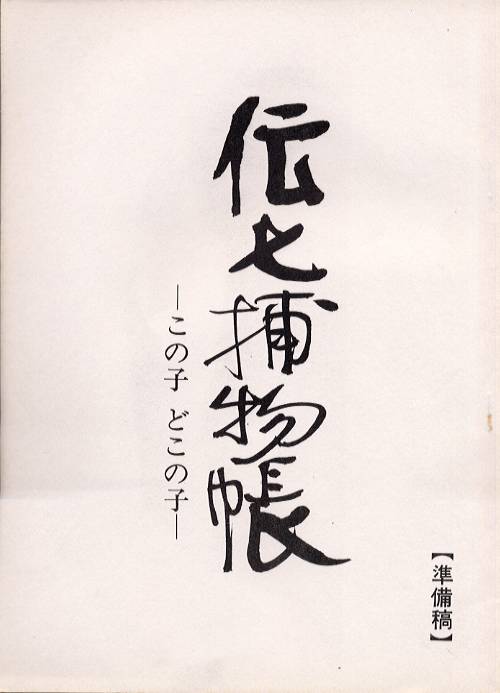 伝七捕物帳
―この子 どこの子―
【準備稿】